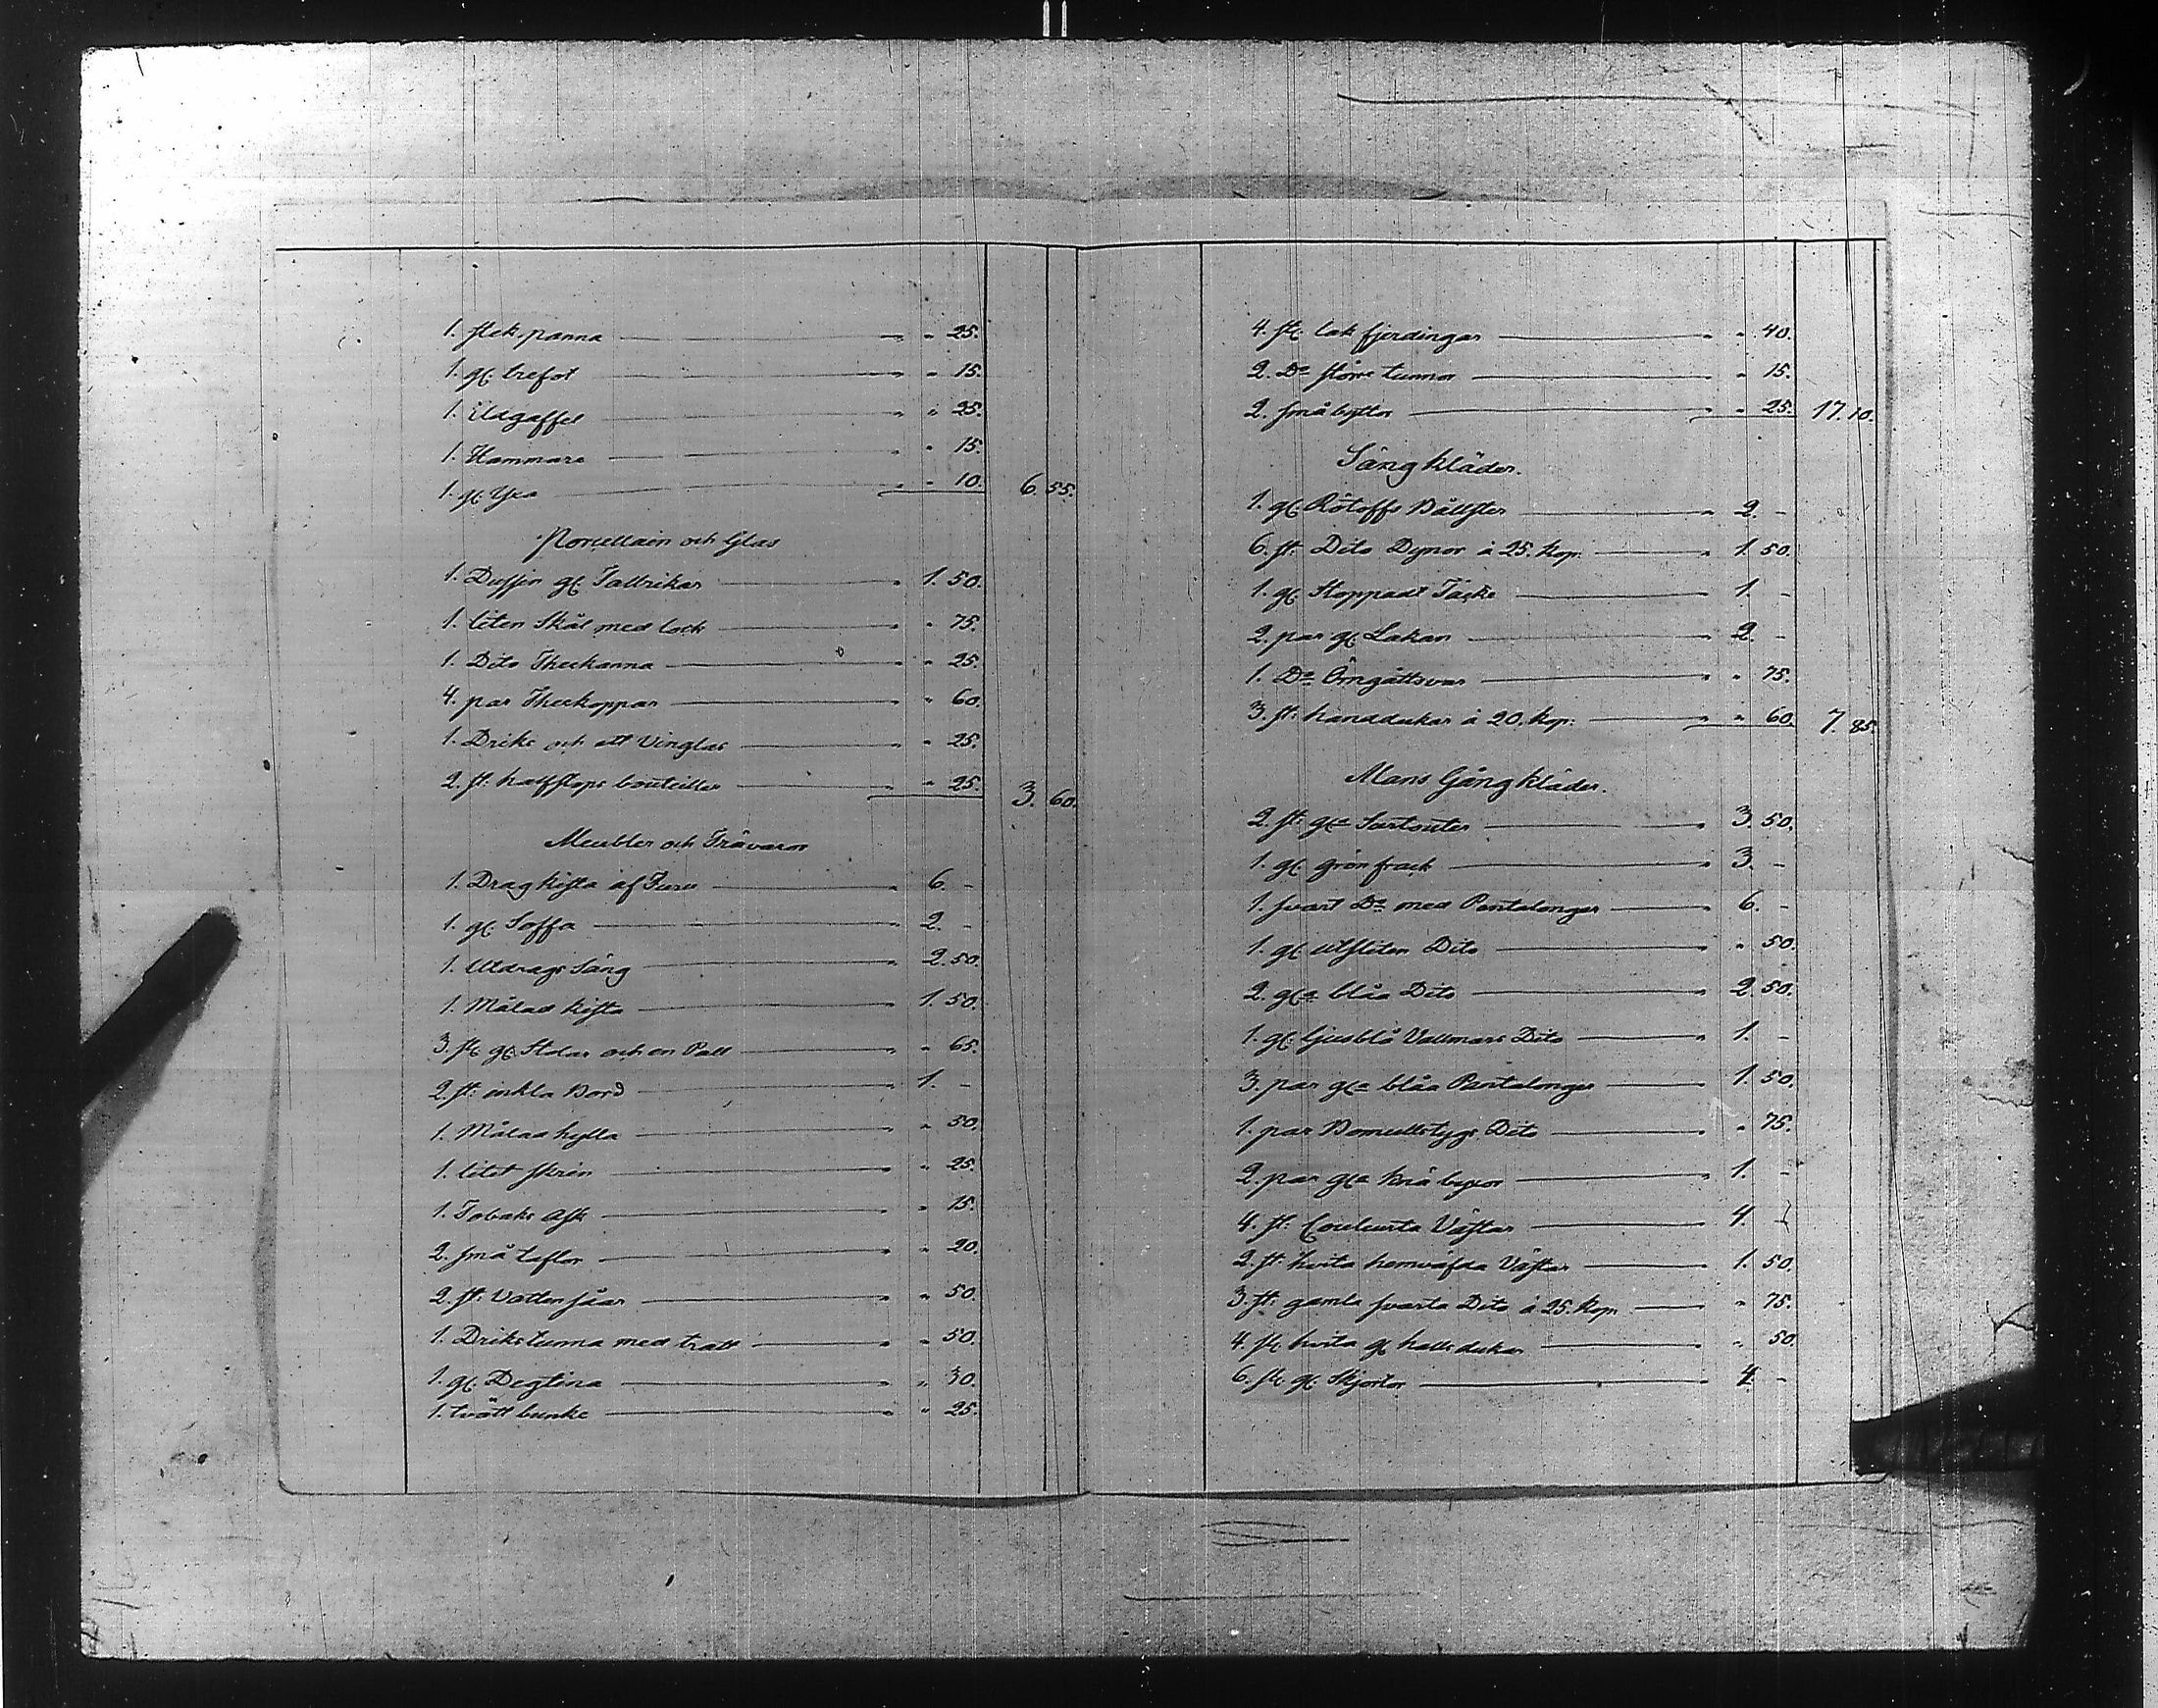 1. stek panna " " 25.
1. gl. trefot " " 15.
1. Ugsgaffel " " 25.
1. Hammare " 15.
1. gl. Yxa " " 10. 6. 55.
Porcellain och Glas
1. Dussin gl. Tallrikar " 1. 50.
1. liten Skål med lock " " 75.
1. Dito Theekanna " " 25.
4. par Theekoppar " " 60.
1. Driks och ett Vinglas " " 25.
2. st: halfstops bouteiller " " 25. 3. 60.
Meubler och Trävaror
1. Dragkista af Furu " 6. -
1. gl. Soffa " 2. -
1. Utdrags Säng " 2. 50.
1. Målad kista " 1. 50.
3. st. gl. Stolar och en Pall " " 65.
2. st: enkla Bord " 1. -
1. Målad hylla " " 50.
1. litet skrin " " 25.
1. Tobaks Ask " 15.
2. små taflor " " 20.
2. st: Vatten såar " " 50.
1. Drikstunna med tratt " " 50.
1. gl. Degtina " " 30.
1. tvätt bunke " " 25.
4. st. lak fjerdingar " " 40.
2. Do större tunnor " 15.
2. små byttor " " 25. 17. 10.
Säng kläder.
1. gl. Rötoffs Bållster " 2. -
6. st. Dito Dynor à 25. kop. " 1. 50.
1. gl. Stoppadt Täcke " 1. -
2. par gl. Lakan " 2. -
1. Do Örngåttsvar " " 75.
3. st: handdukar à 20. kop: " " 60. 7. 85.
Mans Gång kläder.
2. st: gla Surtouter " 3. 50.
1. gl. grön frack " 3. -
1. svart Do med Pantalonger " 6. -
1. gl. utsliten Dito " " 50.
2. gla blåa Dito " 2. 50.
1. gl. ljusblå Vallmars Dito " 1. -
3. par gla blåa Pantalonger " 1. 50.
1. par Bomullstygs Dito " " 75.
2. par gla knä byxor " 1. -
4. st. Couleurta Västar " 4. -
2. st. hvita hemväfda Västar " 1. 50.
3. st: gamla svarta Dito à 25. kop. " " 75.
4. st. hvita gl halsdukar " " 50.
6. st. gl. Skjortor " 4. -